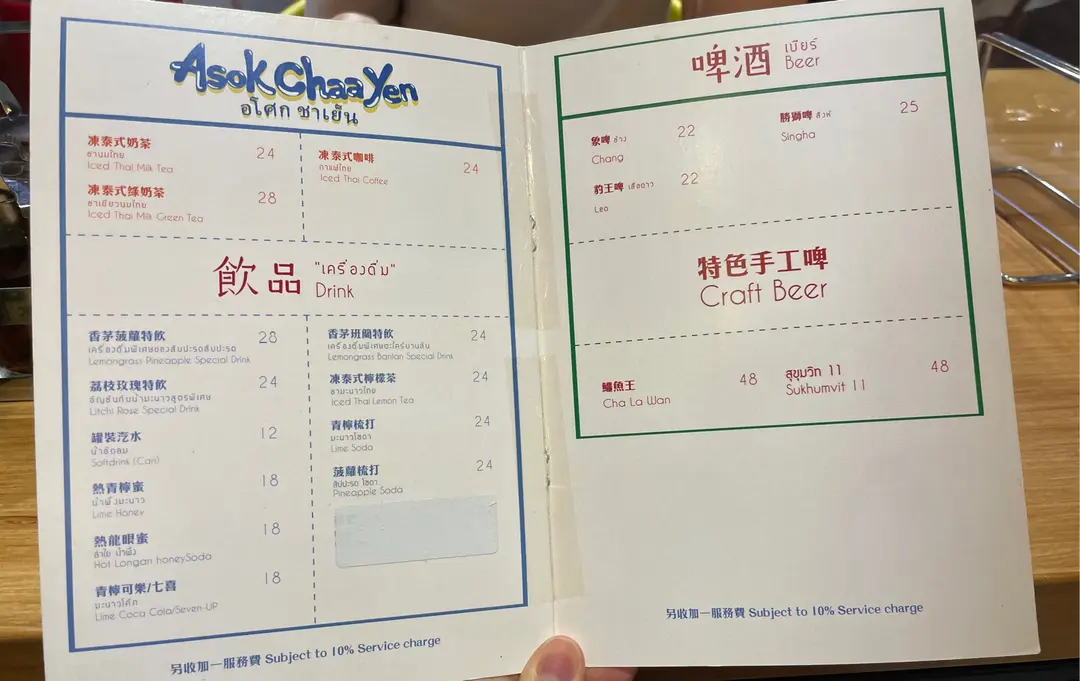 Asok Chaa Yen
อโศก ชาเย็น
凍泰式奶茶 24
ชานมไทย
Iced Thai Milk Tea
凍泰式綠奶茶 28
ชาเขียวนมไทย
Iced Thai Milk Green Tea
凍泰式咖啡 24
กาแฟไทย
Iced Thai Coffee
飲品 "เครื่องดื่ม"
Drink
香茅菠蘿特飲 28
เครื่องดื่มพิเศษของสับปะรดสับปะรด
Lemongrass Pineapple Special Drink
荔枝玫瑰特飲 24
อัญชันกับน้ำมะนาวสูตรพิเศษ
Litchi Rose Special Drink
罐裝汽水 12
น้ำอัดลม
Softdrink (Can)
熱青檸蜜 18
น้ำผึ้งมะนาว
Lime Honey
熱龍眼蜜 18
ลำไย น้ำผึ้ง
Hot Longan honeySoda
青檸可樂/七喜 18
มะนาวโค้ก
Lime Coca Cola/Seven-UP
香茅班蘭特飲 24
เครื่องดื่มพิเศษตะไคร้บานลัน
Lemongrass Banlan Special Drink
凍泰式檸檬茶 24
ชามะนาวไทย
Iced Thai Lemon Tea
青檸梳打 24
มะนาวโซดา
Lime Soda
菠蘿梳打 24
สัปปะรด โซดา
Pineapple Soda
另收加一服務費 Subject to 10% Service charge
啤酒 เบียร์
Beer
象啤 ช้าง 22
Chang
豹王啤 เสือดาว 22
Leo
勝獅啤 สิงห์ 25
Singha
特色手工啤
Craft Beer
鱷魚王 48
Cha La Wan
สุขุมวิท 11 48
Sukhumvit 11
另收加一服務費 Subject to 10% Service charge